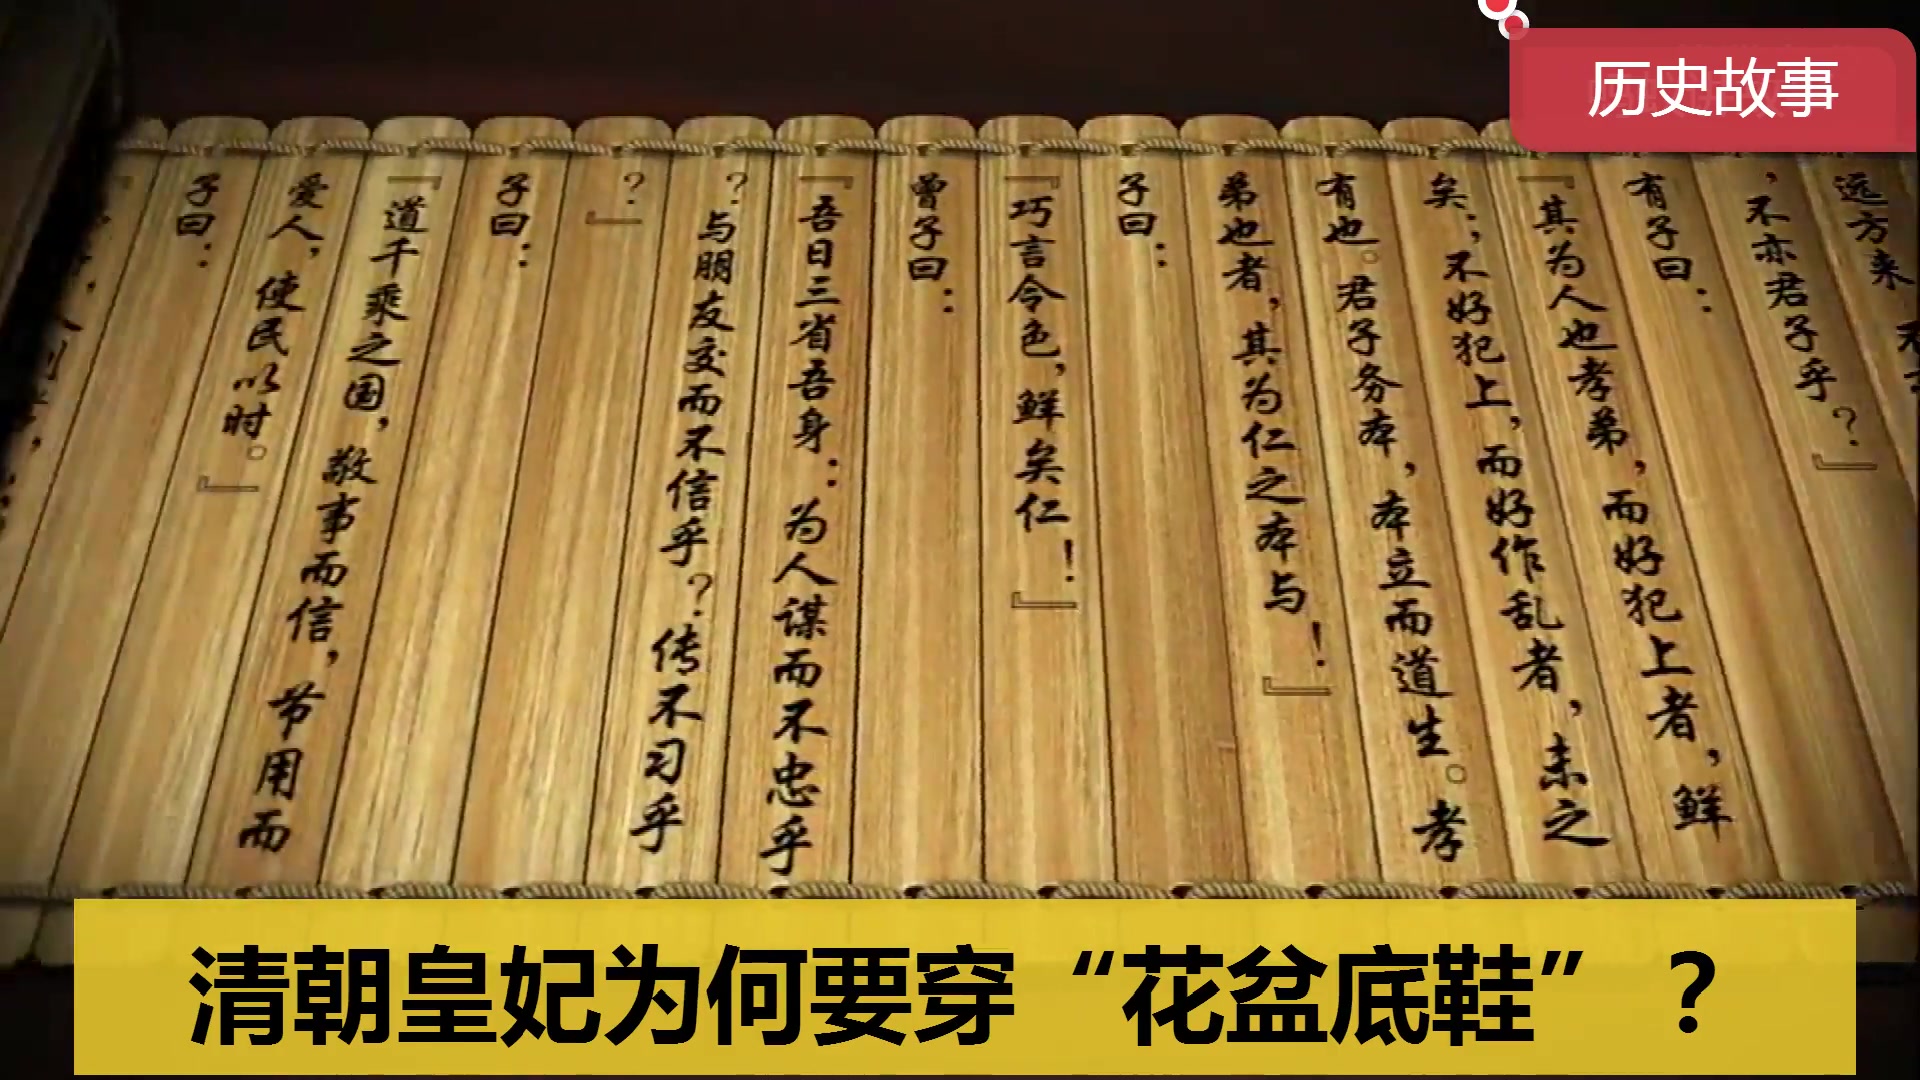 历史故事
远方来
，不亦君子乎？』
有子曰：
『其为人也孝弟，而好犯上者，鲜
矣；不好犯上，而好作乱者，未之
有也。君子务本，本立而道生。孝
弟也者，其为仁之本与！』
子曰：
『巧言令色，鲜矣仁！』
曾子曰：
『吾日三省吾身：为人谋而不忠乎
？与朋友交而不信乎？传不习乎
？』
子曰：
『道千乘之国，敬事而信，节用而
爱人，使民以时。』
子曰：
清朝皇妃为何要穿“花盆底鞋”？